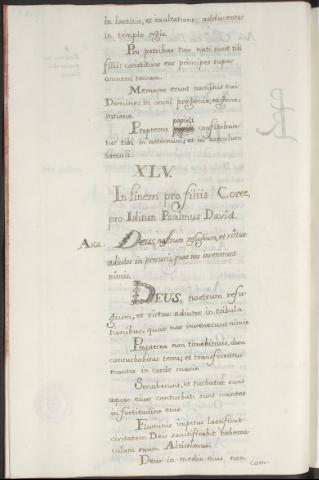 in laetitia, et exultatione: adducentur
in templo regis.
Pro patribus tuis nati sunt tibi
filii: constitues eos principes super
omnem terram.
Memores erunt nominis tui
Domine: in omni progenie, et gene-
ratione.
populi
Propterea confitebun-
tur tibi in aeternum; et in saeculum
saeculi.
XLV.
In finem pro filiis Core,
pro Iditun Psalmus David.
Ana. Deus, nostrum refugium, et virtus:
adiutor in
nimis.
DEUS, nostrum refu-
gium, et virtus: adiutor in tribula-
tionibus, quae nos invenerunt nimis
Propterea non timebimus, dum
conturbabitur terra; et transferentur
montes in corde maris.
Sonuerunt, et turbatae sunt
aquae eius: conturbati sunt montes
in fortitudine eius.
Fluminis impetus laetificat
civitatem Dei: sanctificabit taberna-
culum suum Altissimus.
Deus in medio eius, non
com-